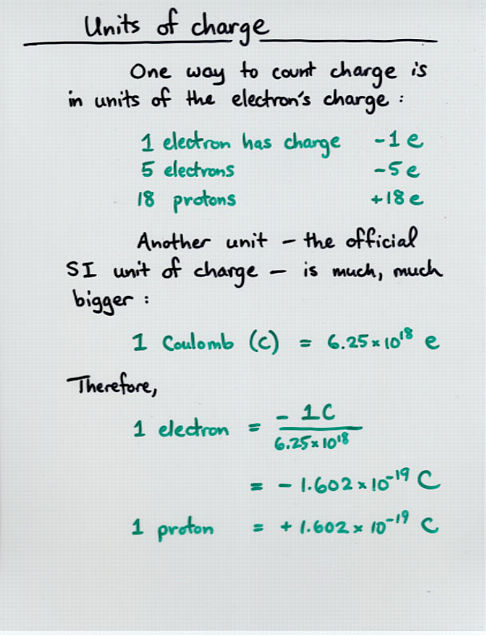 Units of charge
One way to count charge is
in units of the electron's charge :
1 electron has charge -1 e
5 electrons -5 e
18 protons +18 e
Another unit – the official
SI unit of charge – is much, much
bigger :
1 Coulomb (C) = 6.25 × 10¹⁸ e
Therefore,
1 electron = - 1C
6.25 × 10¹⁸
= - 1.602 × 10⁻¹⁹ C
1 proton = + 1.602 × 10⁻¹⁹ C